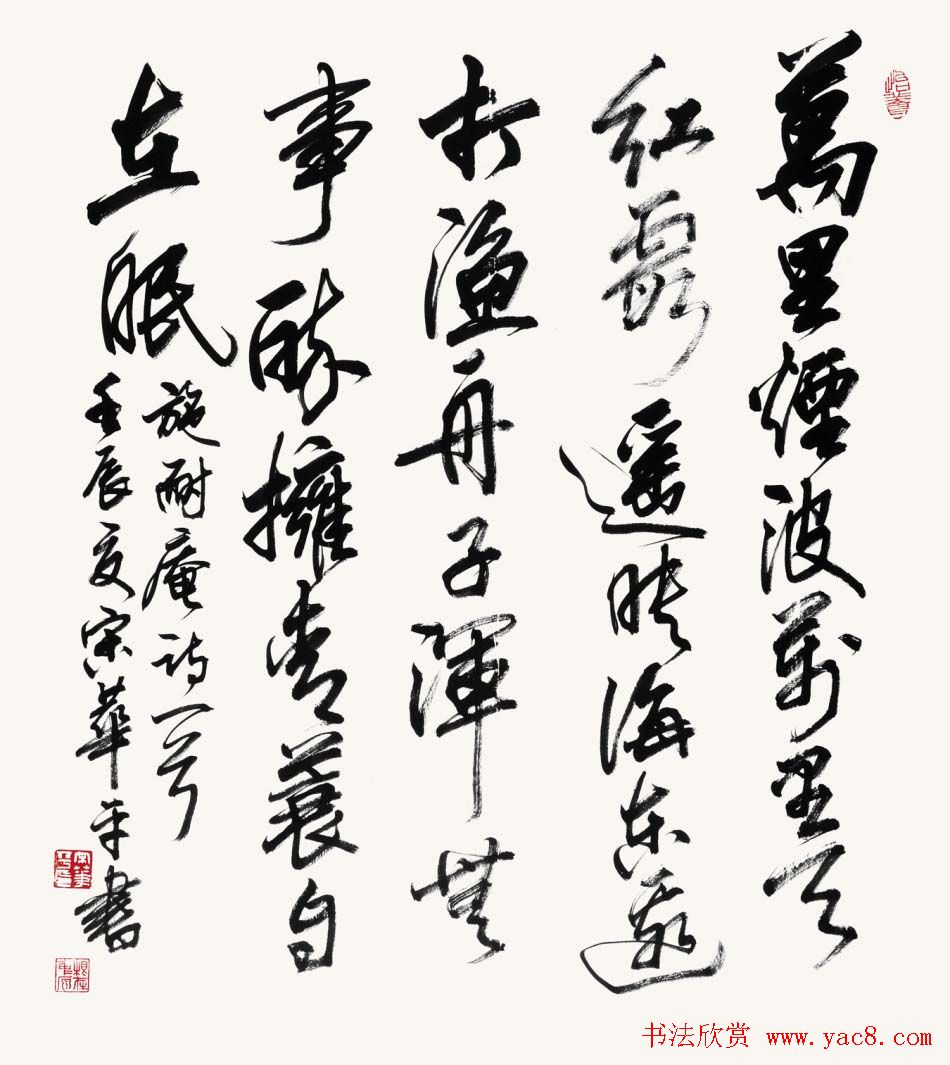 萬里煙波萬里天
紅霞遥映海東邊
打漁舟子渾無
事醉擁青蓑自
在眠
施耐庵诗一首
壬辰夏宋華平書
书法欣赏 www.yac8.com